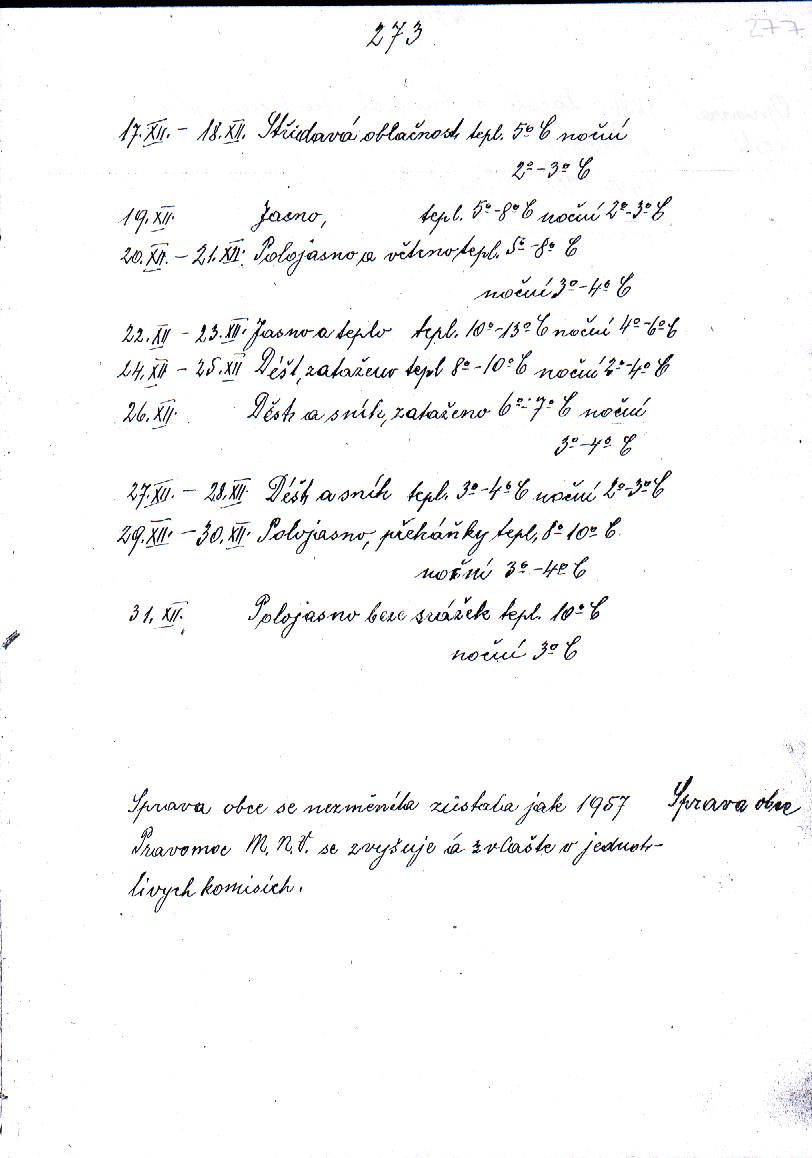 273
277
17.XII. - 18.XII. Střídavá oblačnost tepl. 5º C noční
2º-3º C
19.XII. Jasno, tepl. 5º-8º C noční 2º-3º C
20.XII. - 21.XII. Polojasno a větrno tepl. 5º-8º C
noční 3º-4º C
22.XII - 23.XII. Jasno a teplo tepl. 10º-13º C noční 4º-6º C
24.XII - 25.XII Déšť, zataženo tepl 8º-10º C noční 2º-4º C
26.XII. Déšť a sníh, zataženo 6º-7º C noční
3º-4º C
27.XII. - 28.XII. Déšť a sníh tepl. 3º-4º C noční 2º-3º C
29.XII. - 30.XII. Polojasno, přeháňky tepl. 8º 10º C
noční 3º-4º C
31. XII. Polojasno beze srážek tepl. 10º C
noční 3º C
Sprava obce se nezměnila zůstala jak 1957 Sprava obce
Pravomoc M.N.V. se zvyšuje á zvlaště v jednot-
livych komisích.